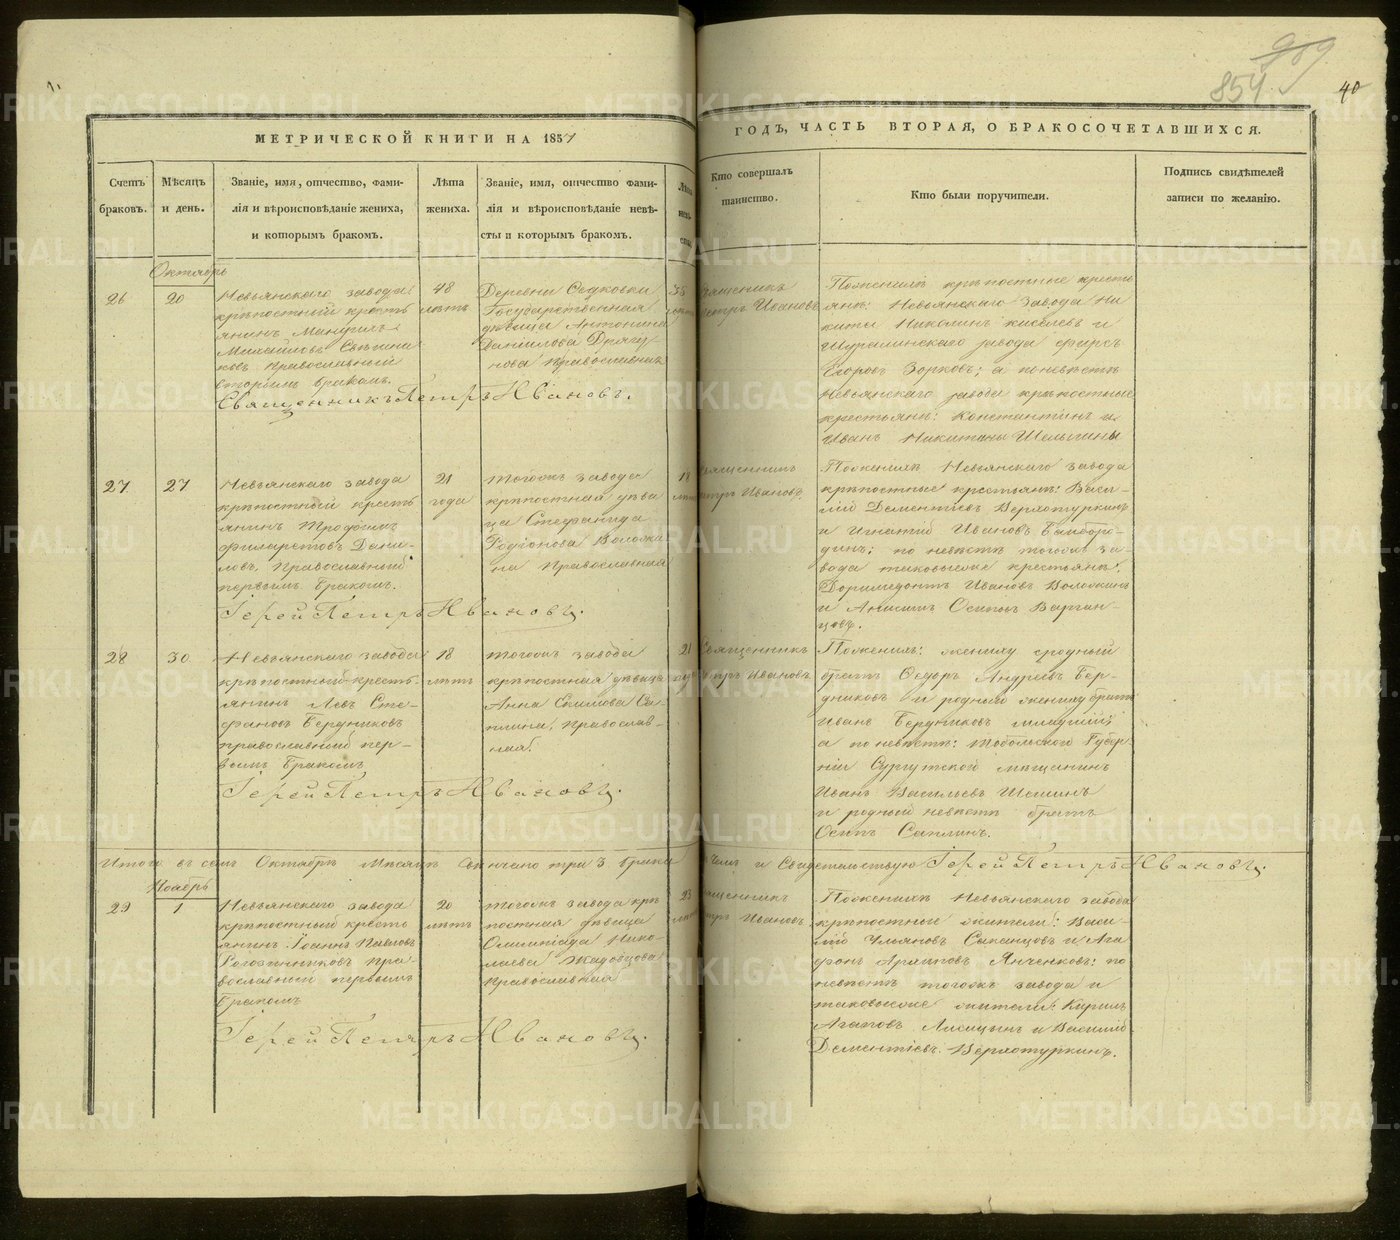 959
854
40
МЕТРИЧЕСКОЙ КНИГИ НА 1857
ГОДЪ, ЧАСТЬ ВТОРАЯ, О БРАКОСОЧЕТАВШИХСЯ.
Счетъ
браковъ.
Мѣсяцъ
и день.
Званіе, имя, отчество, фами-
лія и вѣроисповѣданіе жениха,
и которымъ бракомъ.
Лѣта
жениха.
Званіе, имя, отчество фами-
лія и вѣроисповѣданіе невѣ-
сты и которымъ бракомъ.
Лѣта
невѣ-
сты
Кто совершалъ
таинство.
Кто были поручители.
Подпись свидѣтелей
записи по желанію.
Октябрь
26
20
Невьянскаго завода
крѣпостный кресть
янинъ
Михайловъ
ковъ Православный
вторымъ бракомъ.
48
лѣтъ
Деревни Сѣдковки
Государственная
дѣвица Антонина
Данилова
нова Православная
35
Священникъ
Петръ Ивановъ
По женихѣ крѣпостные кресть
яне: Невьянскаго завода Ни
кита Николинъ Киселевъ и
Шуралинскаго завода Фирсъ
Егоровъ Зорковъ; а по невѣстѣ
Невьянскаго завода крѣпостные
крестьяне: Константинъ и
Иванъ Никитины Шелыгины
Священникъ Петръ Ивановъ.
27
27
Невьянскаго завода
крѣпостный кресть
янинъ Трофимъ
Филаретовъ Дани-
ловъ, Православный
первымъ бракомъ.
21
года
Тогожъ завода
крѣпостная дѣви
ца Стефанида
Родіонова Воложа
на Православная
18
лѣтъ
Священникъ
Петръ Ивановъ.
По женихѣ Невьянскаго завода
крѣпостные крестьяне: Васи-
лій Дементіевъ Верхотуркинъ
и Игнатій Ивановъ Байборо-
динъ; по невѣстѣ тогожъ за-
вода таковыеже крестьяне:
Доримедонтъ Ивановъ
и Анисимъ Осиповъ Варган-
цовъ.
Іерей Петръ Ивановъ.
28
30
Невьянскаго завода
крѣпостный кресть-
янинъ Левъ Сте-
фановъ Бердниковъ
православный пер-
вымъ бракомъ
18
лѣтъ
Тогожъ завода
крѣпостная дѣвица
Анна Екимова Са-
плина, Православ-
ная.
21
Священникъ
Петръ Ивановъ.
По женихѣ: жениху сродный
братъ Ѳедоръ Андреевъ Бер-
дниковъ и родный жениху братъ
Иванъ Бердниковъ младшій
а по невѣстѣ: Тобольской Губер
ніи Сургутской мѣщанинъ
Иванъ Василіевъ Шешинъ
и родный невѣстѣ братъ
Осипъ Саплинъ.
Іерей Петръ Ивановъ.
Итого въ семъ Октябрѣ Мѣсяцѣ Свѣнчано три 3 брака
въ чемъ и Свидѣтельствую Іерей Петръ Ивановъ.
Ноябрь
29
1
Невьянскаго завода
крѣпостный кресть
янинъ Іоаннъ Павловъ
Рогожниковъ Пра-
вославный первымъ
бракомъ
20
лѣтъ
Тогожъ завода крѣ
постная дѣвица
Олимпіада Нико-
лаева Жадовцова
Православная
23
Священникъ
Петръ Ивановъ
По женихѣ Невьянскаго завода
крѣпостные жители: Васи-
лій Ульяновъ Саканцовъ и Ага
фонъ Архиповъ Янченковъ: по
невѣстѣ тогожъ завода и
таковыеже жители: Кирилъ
Агаповъ Лисицынъ и Василій
Дементіевъ Верхотуркинъ.
Іерей Петръ Ивановъ.
METRIKI.GASO-URAL.RU